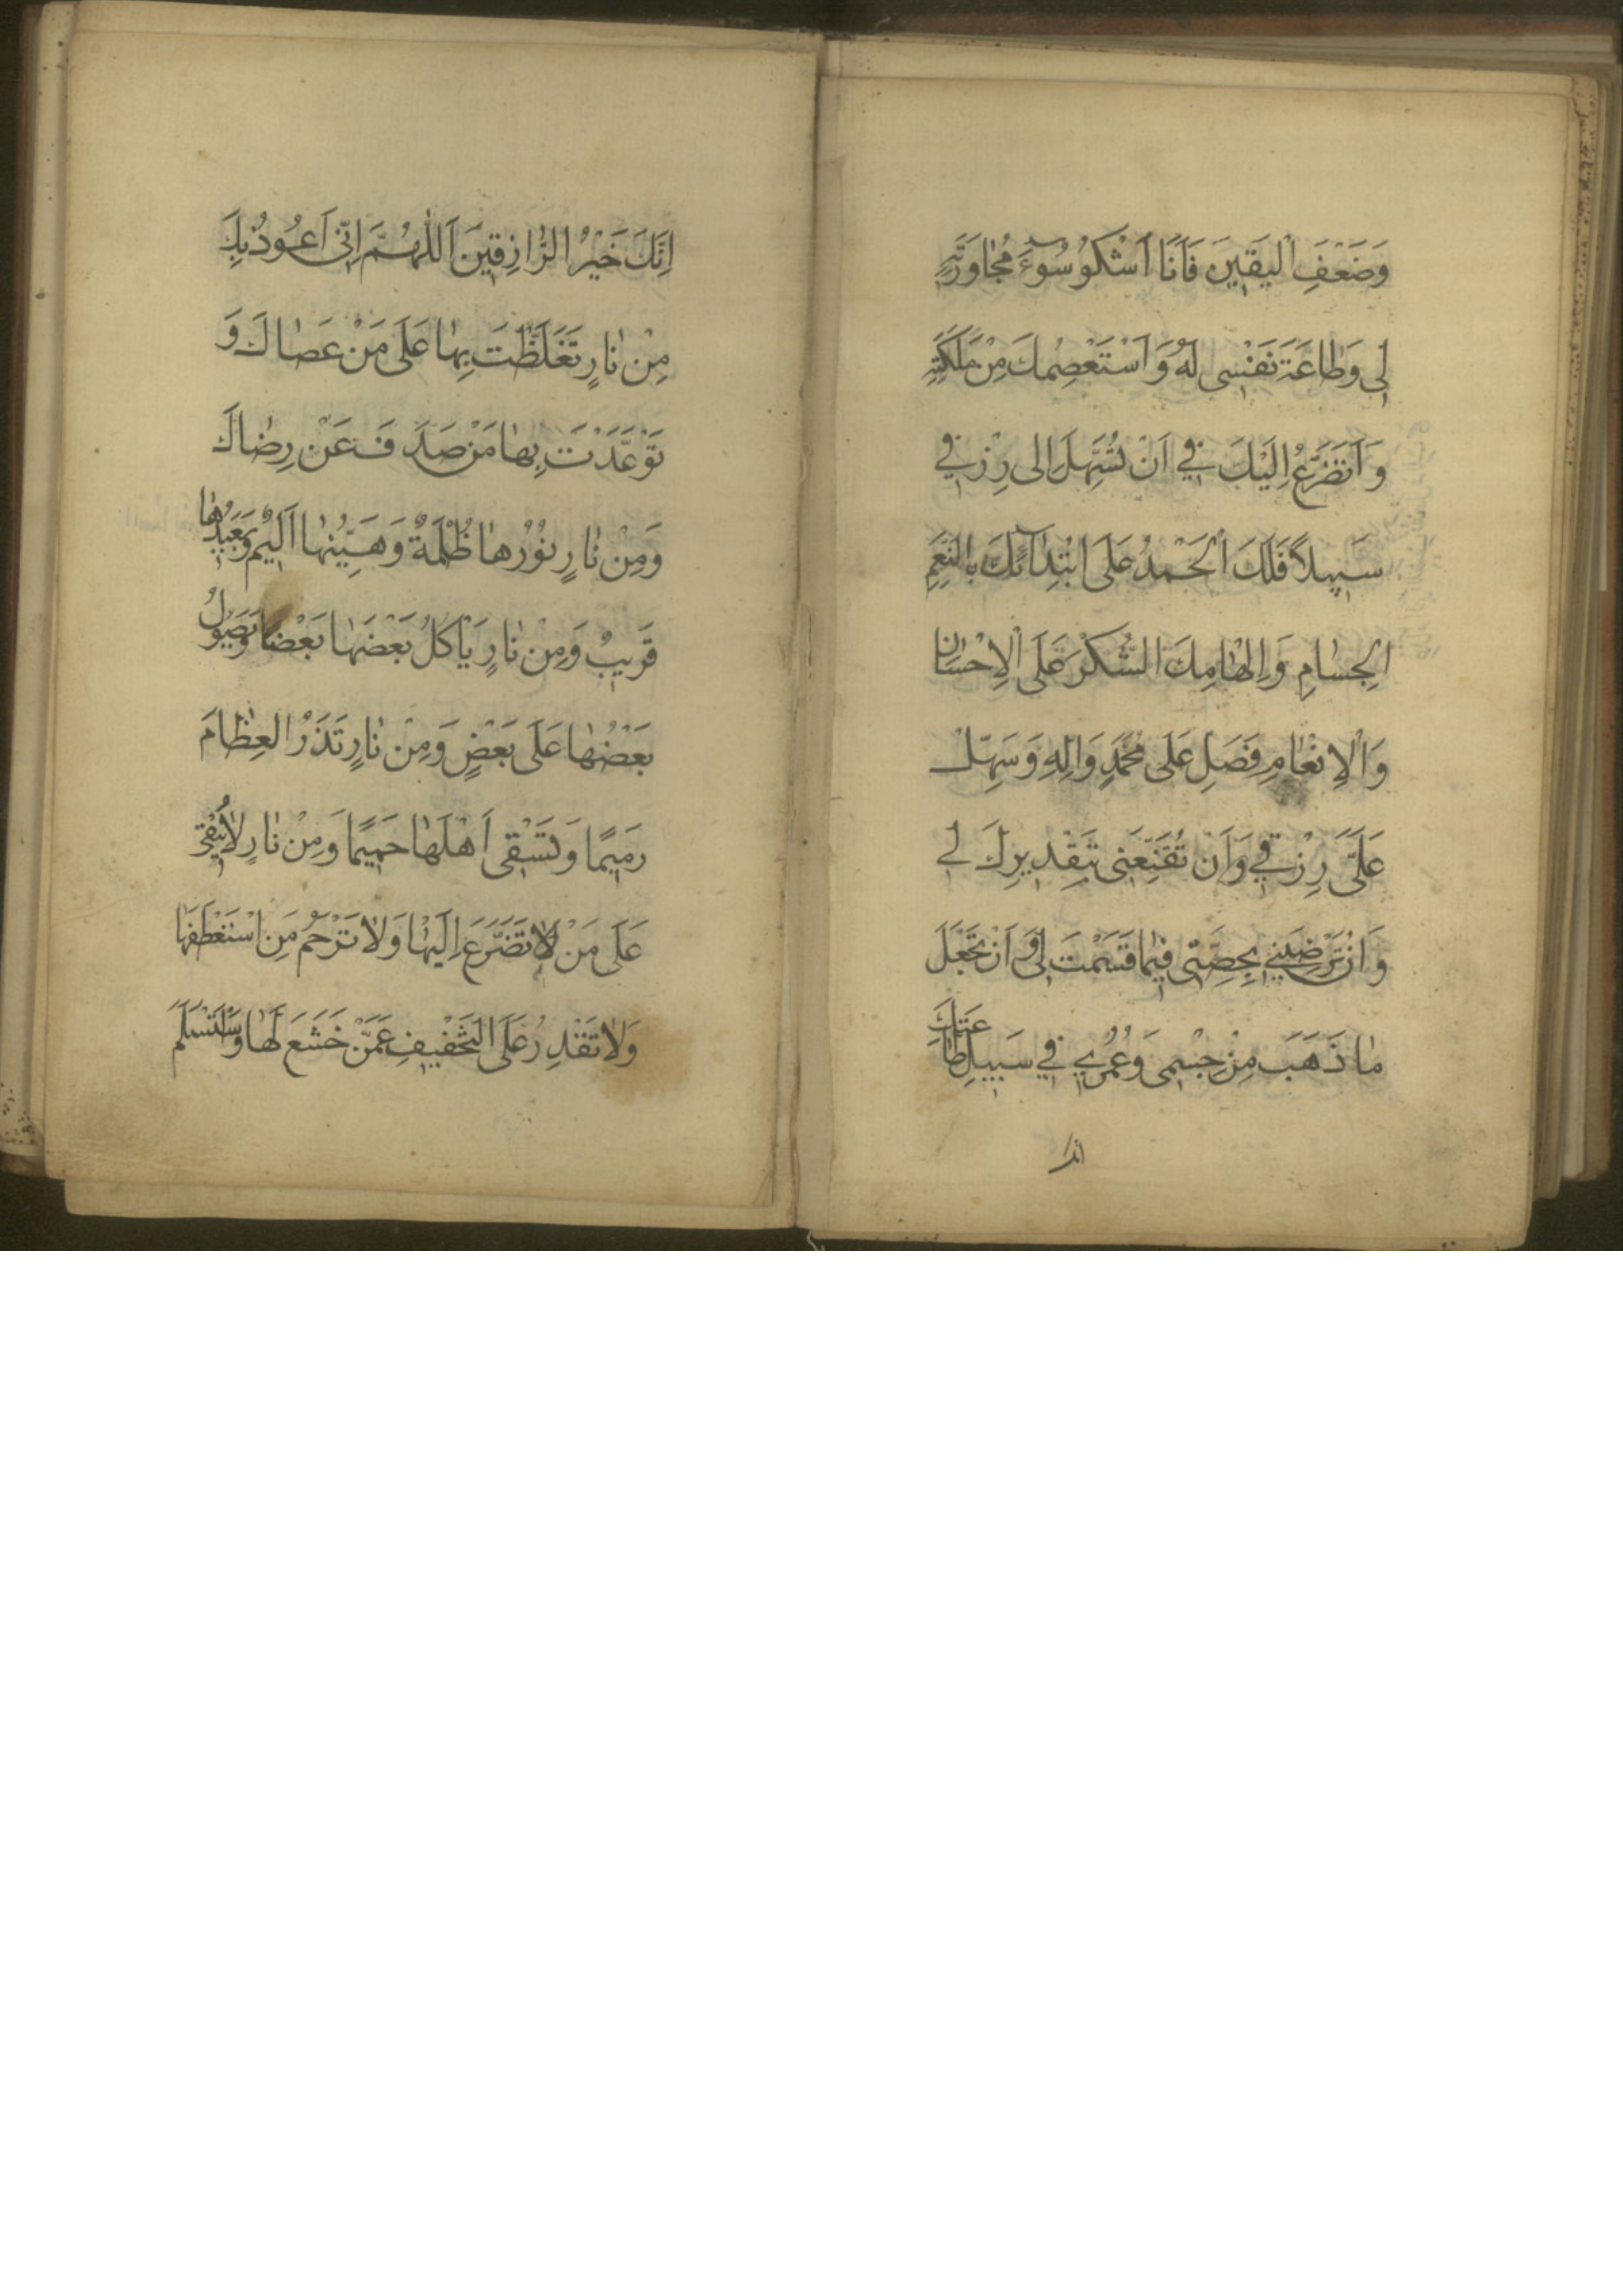 وَضَعْفِ الْيَقِينِ فَاَنَا اَشْكُو سُوٓءَ مُجاوَرَتِهِ
لِى وَطاعَةَ نَفْسِى لَهُ وَاَسْتَعْصِمُكَ مِنْ مَلَكَتِهِ
وَاَتَضَرَّعُ اِلَيْكَ فِي اَنْ تُسَهِّلَ اِلى رِزْقِي
سَبِيلاً فَلَكَ الْحَمْدُ عَلَى ابْتِدآئِكَ بِالنِّعَمِ
الْجِسامِ وَاِلْهامِكَ الشُّكْرَ عَلَى الْاِحْسانِ
وَالْاِنْعامِ فَصَلِّ عَلى مُحَمَّدٍ وَالِهِ وَسَهِّلْ
عَلَىَّ رِزْقِي وَاَنْ تُقَنِّعَنِى بِتَقْدِيرِكَ لِي
وَاَنْ تُرْضِيَنِي بِحِصَّتِى فِيما قَسَمْتَ لِى وَ اَنْ تَجْعَلَ
ما ذَهَبَ مِنْ جِسْمِى وَعُمُرِي فِي سَبِيلِ طاعَتِكَ
انك
اِنَّكَ خَيْرُ الرَّازِقِينَ اَللّٰهُمَّ اِنِّى اَعُوذُ بِكَ
مِنْ نارٍ تَغَلَّظْتَ بِها عَلى مَنْ عَصاكَ وَ
تَوَعَّدْتَ بِها مَنْ صَدَفَ عَنْ رِضاكَ
وَمِنْ نارٍ نُوْرُها ظُلْمَةٌ وَهَيِّنُها اَلِيمٌ وَبَعِيدُها
قَرِيبٌ وَمِنْ نارٍ يَاْكُلُ بَعْضَها بَعْضٌ وَيَصُولُ
بَعْضُها عَلى بَعْضٍ وَمِنْ نارٍ تَذَرُ الْعِظامَ
رَمِيمًا وَتَسْقِى اَهْلَها حَمِيمًا وَمِنْ نارٍ لاتُبْقِي
عَلى مَنْ تَضَرَّعَ اِلَيْها وَلا تَرْحَمُ مَنِ اسْتَعْطَفَها
وَلا تَقْدِرُ عَلَى التَّخْفِيفِ عَمَّنْ خَشَعَ لَها وَاسْتَسْلَمَ